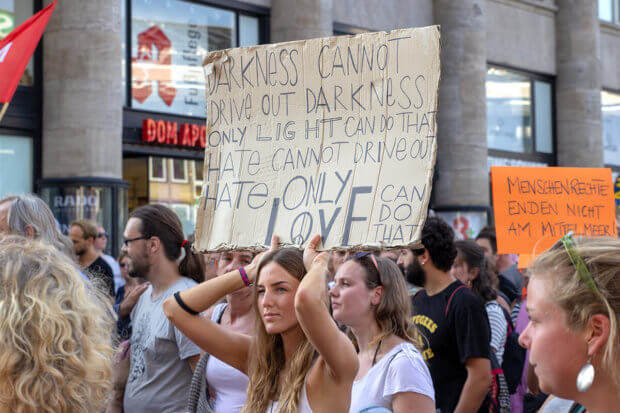 DARKNESS CANNOT
DRIVE OUT DARKNESS
ONLY LIGHT CAN DO THAT
HATE CANNOT DRIVE OUT
HATE ONLY
LOVE
CAN
DO
THAT
MENSCHENRECHTE
ENDEN NICHT
AM MITTELMEER
DOM APO
Fußpflege
RADO